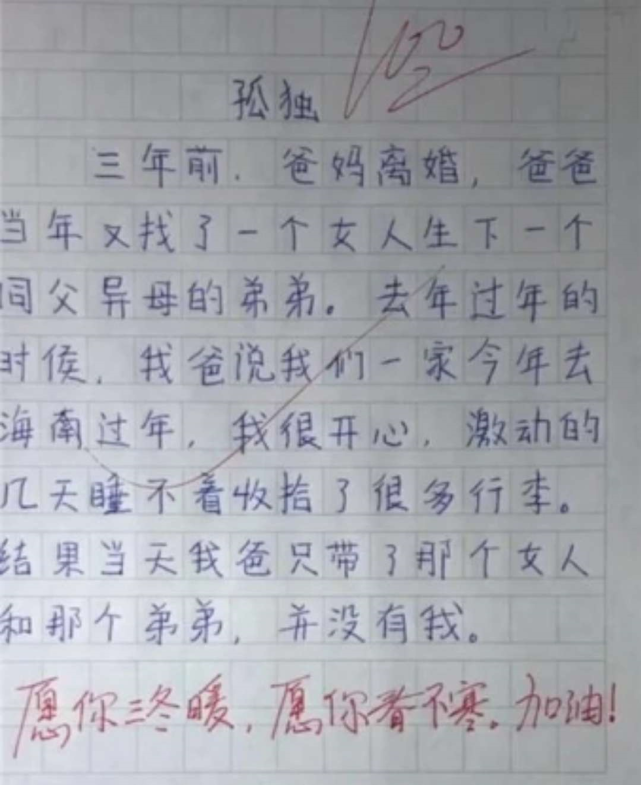 100
孤独
三年前.爸妈离婚,爸爸
当年又找了一个女人生下一个
同父异母的弟弟。去年过年的
时侯,我爸说我们一家今年去
海南过年,我很开心,激动的
几天睡不着收拾了很多行李。
结果当天我爸只带了那个女人
和那个弟弟,并没有我。
愿你三冬暖,愿你春不寒.加油!